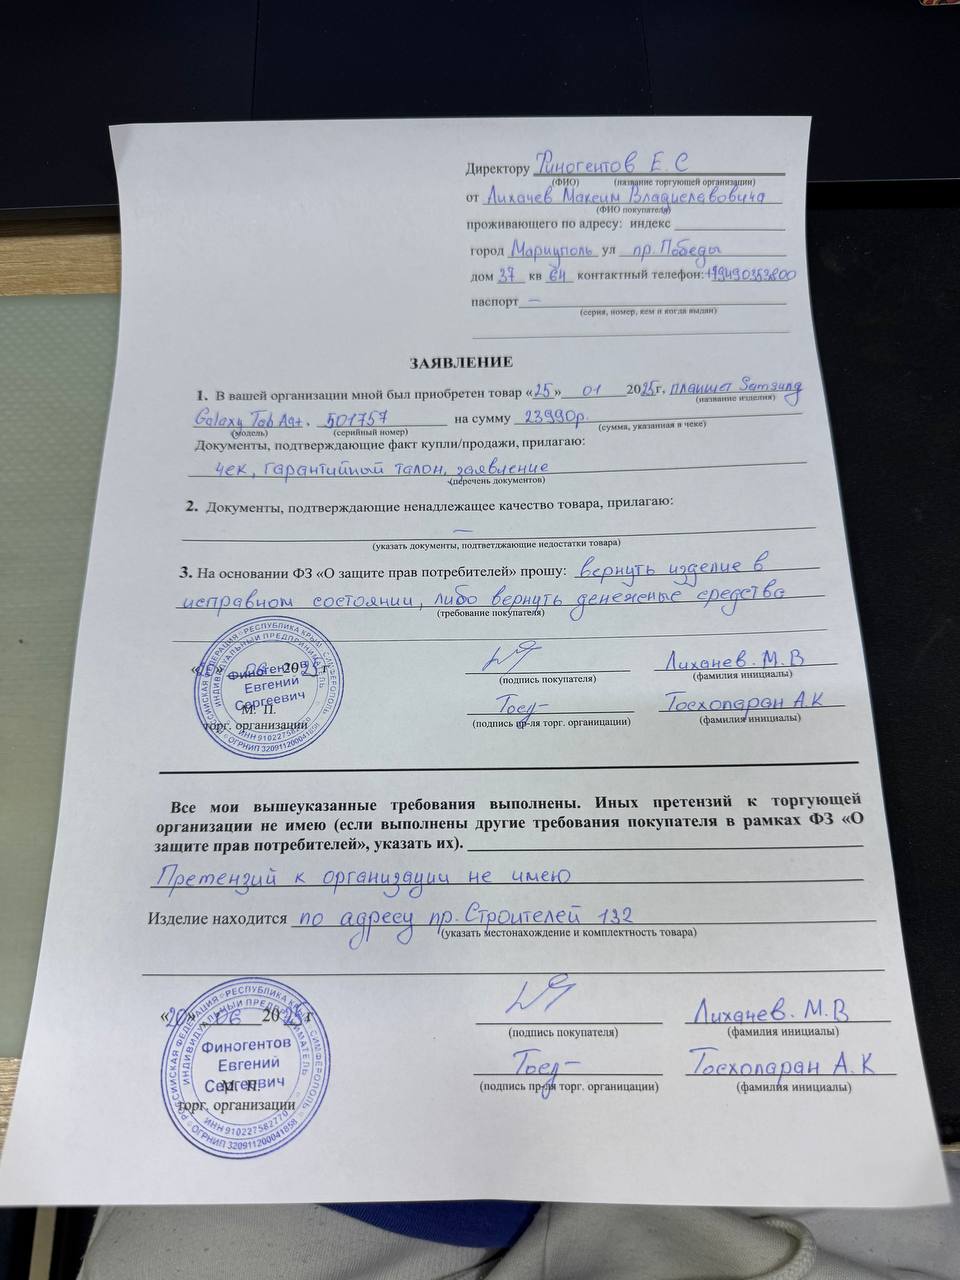 Директору Финогентов Е. С
(ФИО) (название торгующей организации)
от Лихачев Максим Владиславовича
(ФИО покупателя)
проживающего по адресу: индекс
город Мариуполь ул пр. Победы
дом 37 кв 64 контактный телефон: +79490353800
паспорт —
(серия, номер, кем и когда выдан)
ЗАЯВЛЕНИЕ
1. В вашей организации мной был приобретен товар «25» 01 2025г, планшет Samsung
(название изделия)
Galaxy Tab A9+, 501757 на сумму 23990р.
(модель) (серийный номер) (сумма, указанная в чеке)
Документы, подтверждающие факт купли/продажи, прилагаю:
чек, гарантийной талон, заявление
(перечень документов)
2. Документы, подтверждающие ненадлежащее качество товара, прилагаю:
—
(указать документы, подтветджающие недостатки товара)
3. На основании ФЗ «О защите прав потребителей» прошу: вернуть изделие в
исправном состоянии, либо вернуть денежные средства
(требование покупателя)
« » 06 2025г Лихачев. М. В
(подпись покупателя) (фамилия инициалы)
М. П. Тосхопаран А.К
торг. организации (подпись пр-ля торг. органицации) (фамилия инициалы)
РОССИЙСКАЯ ФЕДЕРАЦИЯ РЕСПУБЛИКА КРЫМ СИМФЕРОПОЛЬ
ИНДИВИДУАЛЬНЫЙ ПРЕДПРИНИМАТЕЛЬ
Финогентов
Евгений
Сергеевич
ИНН 910227582770
ОГРНИП 320911200041858
Все мои вышеуказанные требования выполнены. Иных претензий к торгующей
организации не имею (если выполнены другие требования покупателя в рамках ФЗ «О
защите прав потребителей», указать их).
Претензий к организации не имею
Изделие находится по адресу пр. Строителей 132
(указать местонахождение и комплектность товара)
«20» 06 2025г Лихачев. М. В
(подпись покупателя) (фамилия инициалы)
М. П. Тосхопаран А. К
торг. организации (подпись пр-ля торг. органицации) (фамилия инициалы)
РОССИЙСКАЯ ФЕДЕРАЦИЯ РЕСПУБЛИКА КРЫМ СИМФЕРОПОЛЬ
ИНДИВИДУАЛЬНЫЙ ПРЕДПРИНИМАТЕЛЬ
Финогентов
Евгений
Сергеевич
ИНН 910227582770
ОГРНИП 320911200041858